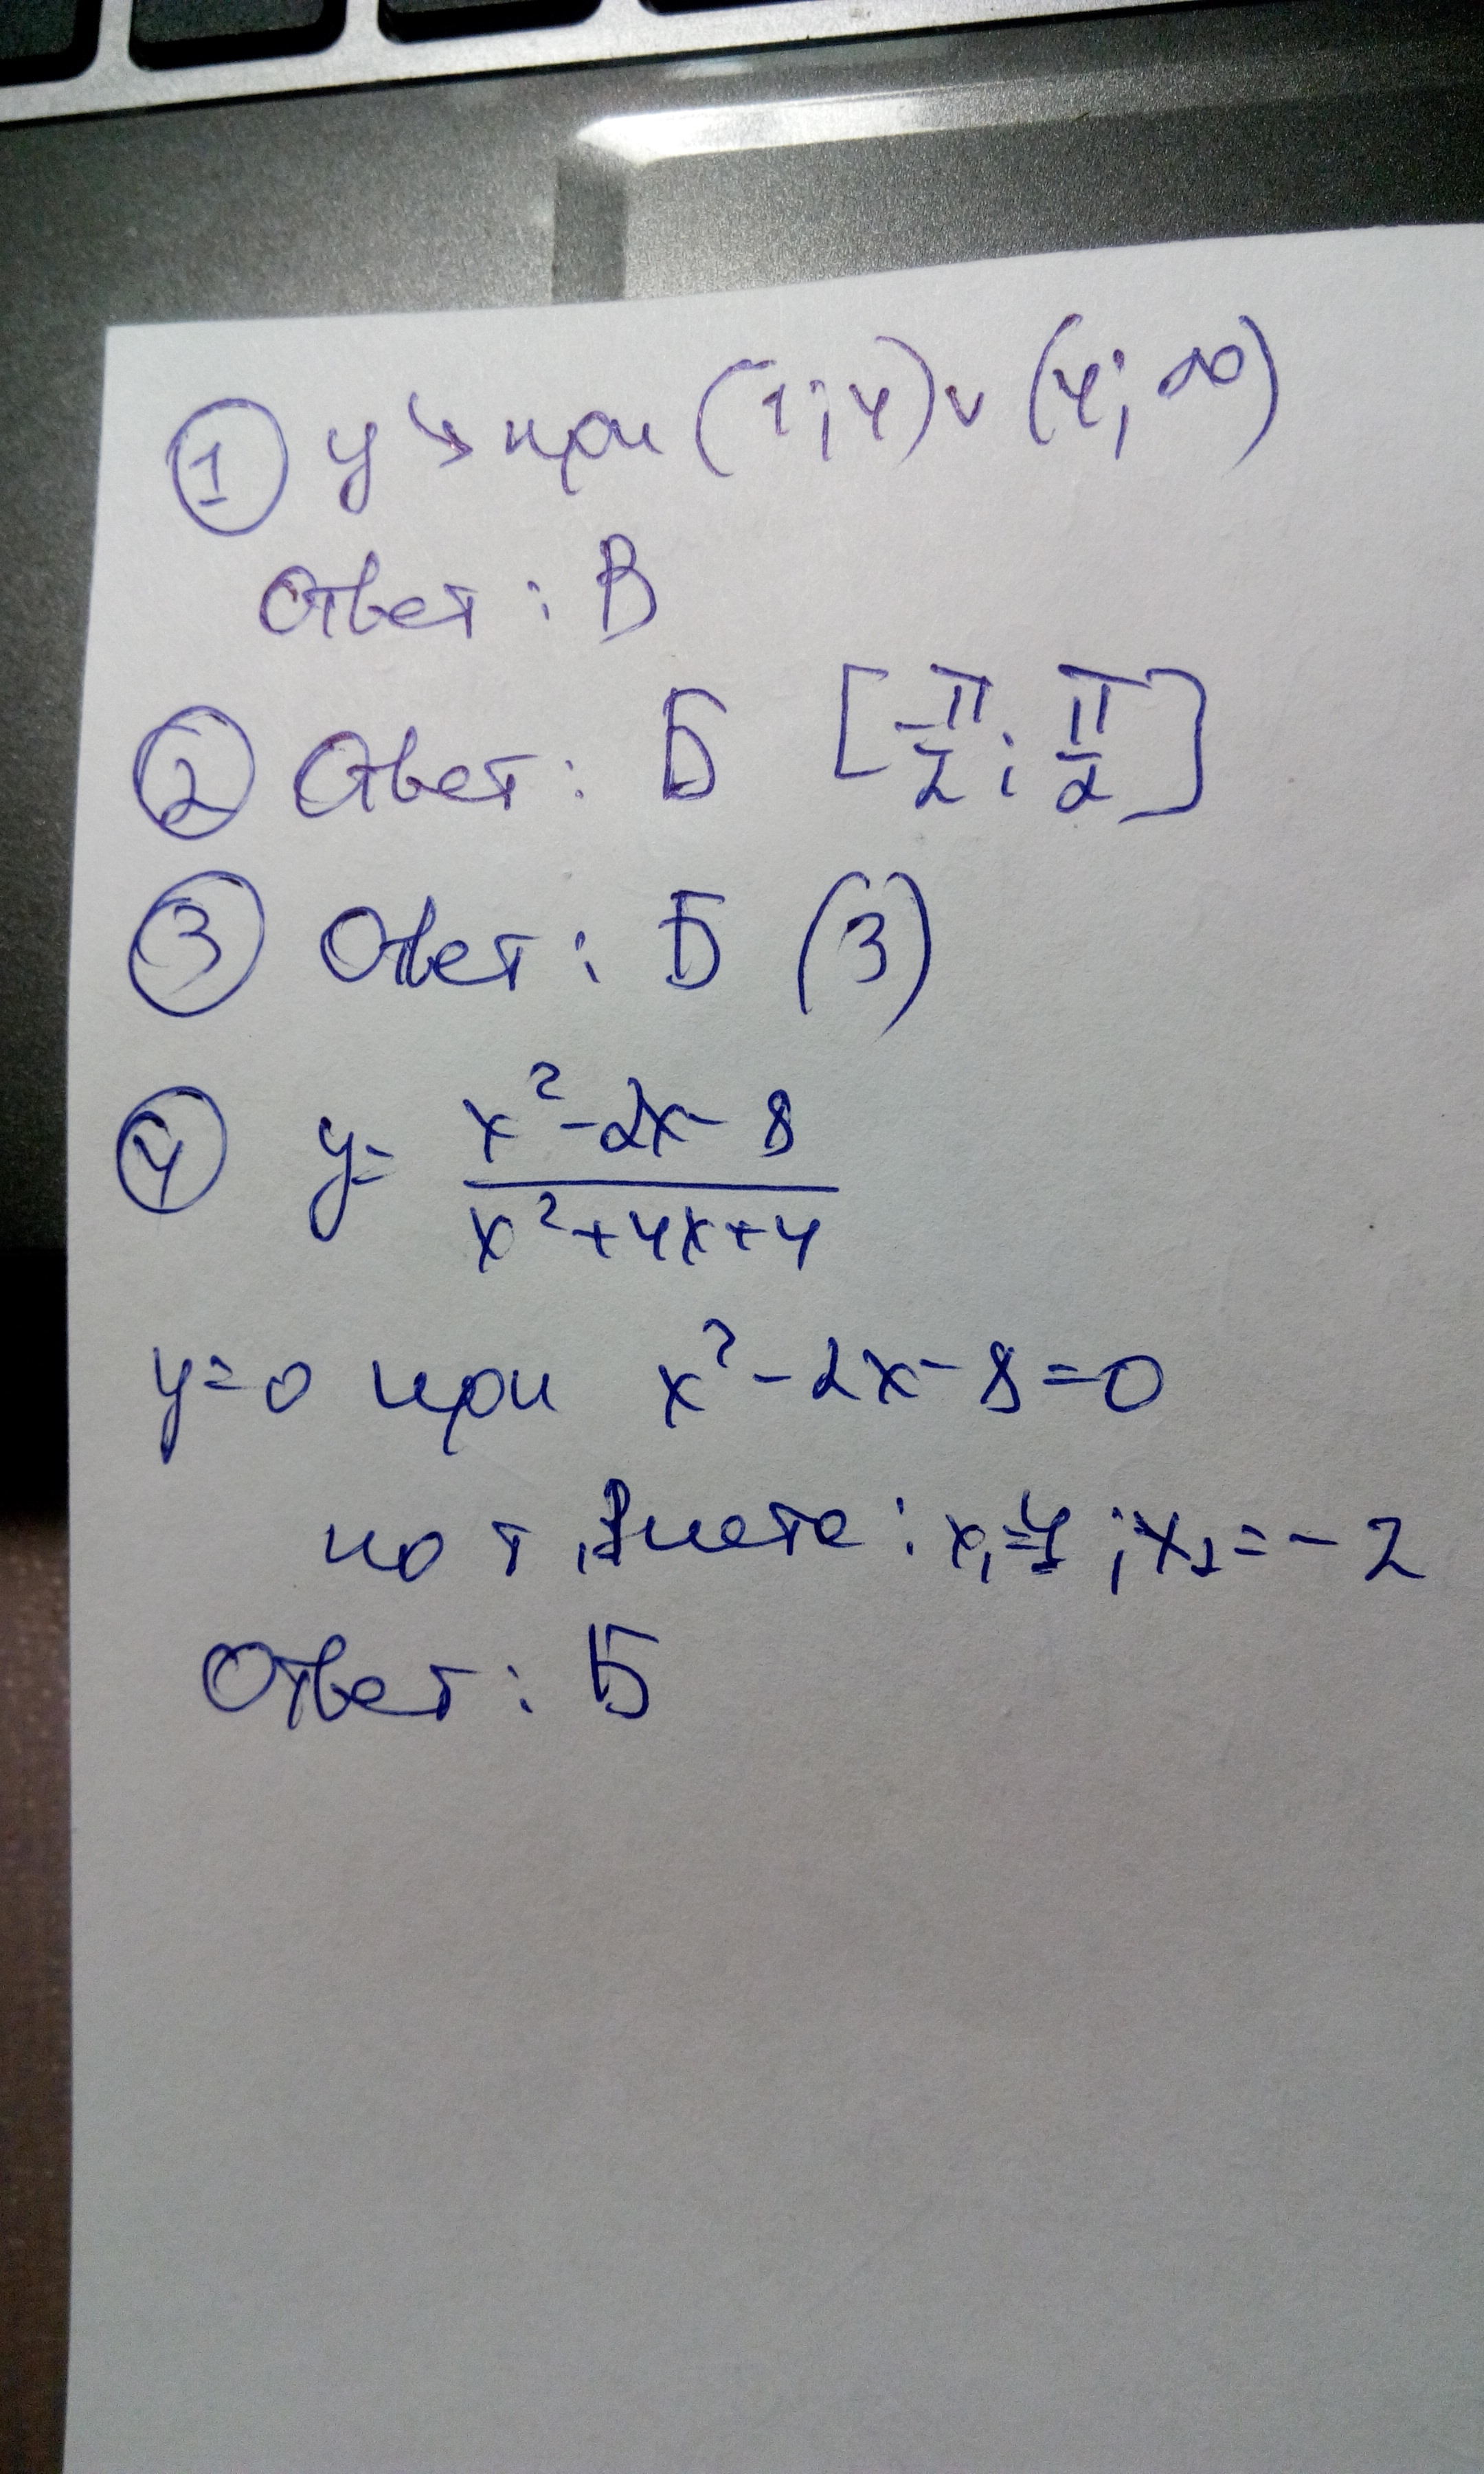 ① y ↘ при (1; 4) ∨ (4; ∞)
Ответ: В
② Ответ: Б [-π/2; π/2]
③ Ответ: Б (3)
④ y = (x² - 2x - 8)/(x² + 4x + 4)
y = 0 при x² - 2x - 8 = 0
по т. Виета: x₁ = 4; x₂ = -2
Ответ: Б